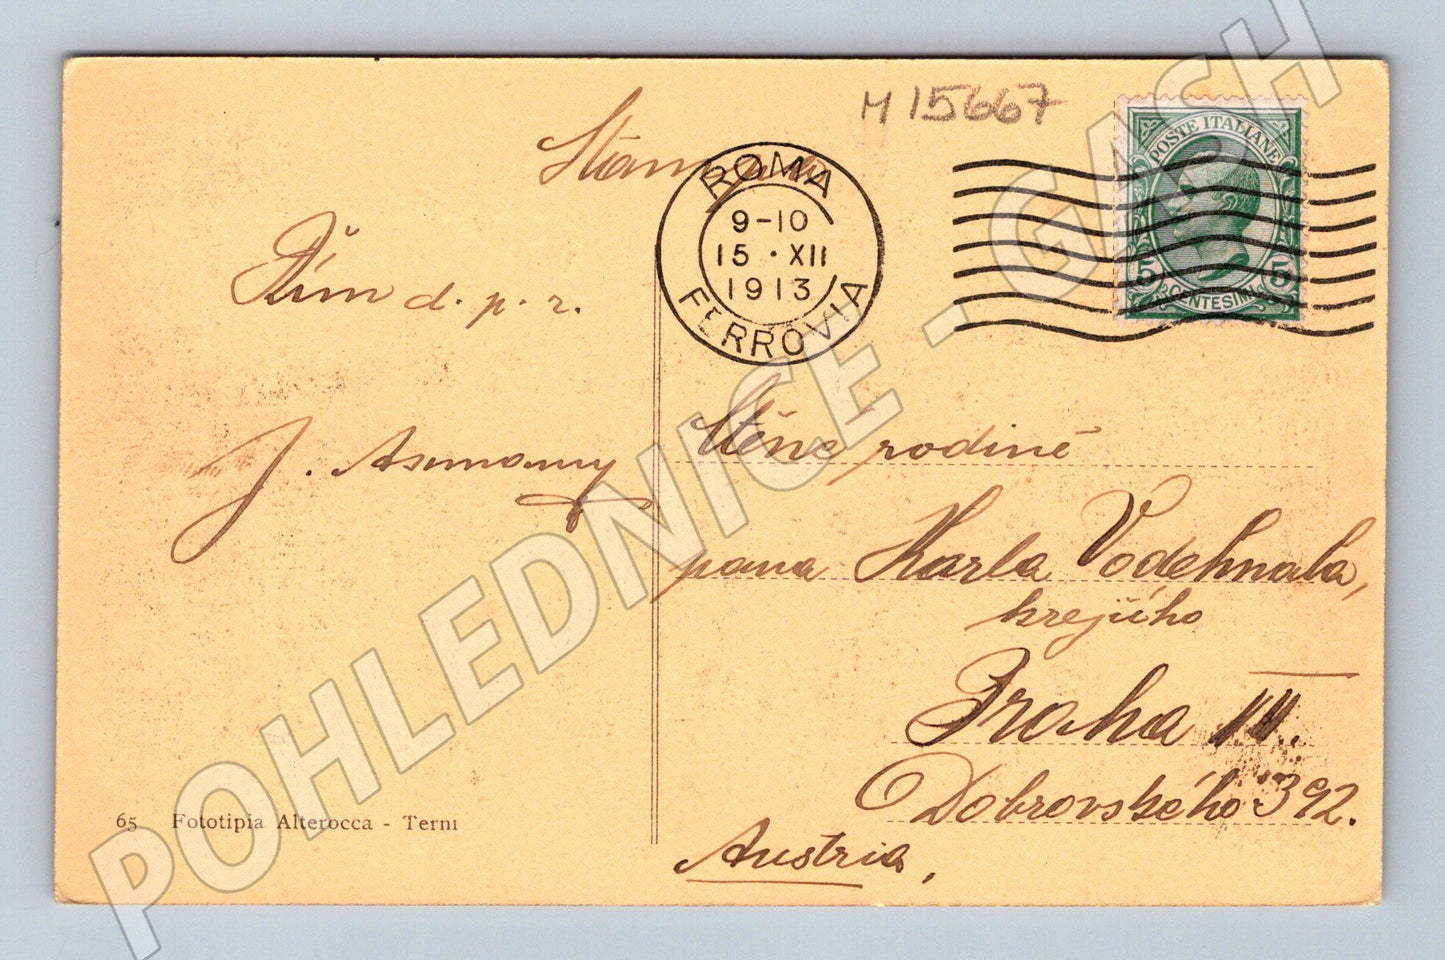 M 15667
ROMA
9-10
15 · XII
1913
FERROVIA
POSTE ITALIANE
5 5
CENTESIMI
Řím d. p. r.
J.
Ctěné rodině
pana Karla Vodehnala,
krejčího
Praha III.
Dobrovského 392.
Austria,
65 Fototipia Alterocca - Terni
POHLEDNICE - GASH